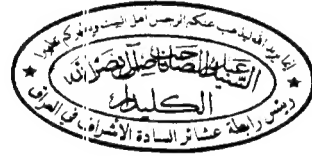 إنما يريد الله ليذهب عنكم الرجس أهل البيت ويطهركم تطهيرا
السيد عبد الصاحب
نصر الله
الكليدار
رئيس رابطة عشائر السادة الأشراف في العراق